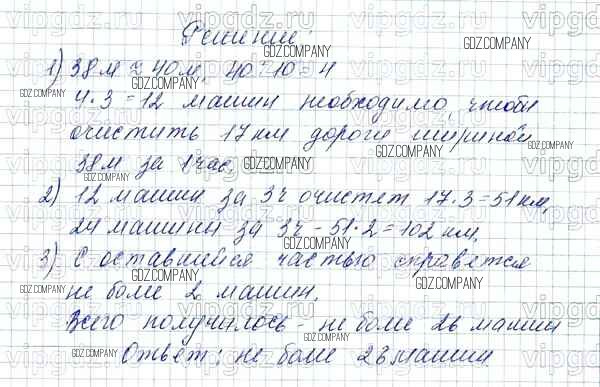 Решение:
1) 38 м ≈ 40 м, 40 : 10 = 4
4 · 3 = 12 машин необходимо, чтобы
очистить 17 км дороги шириной
38 м за 1 час.
2) 12 машин за 3ч очистят 17 · 3 = 51 км,
24 машины за 3ч - 51 · 2 = 102 км.
3) С оставшейся частью справятся
не боле 2 машин.
Всего получилось - не боле 26 машин
Ответ: не боле 28 машин.
GDZ.COMPANY
vipgdz.ru